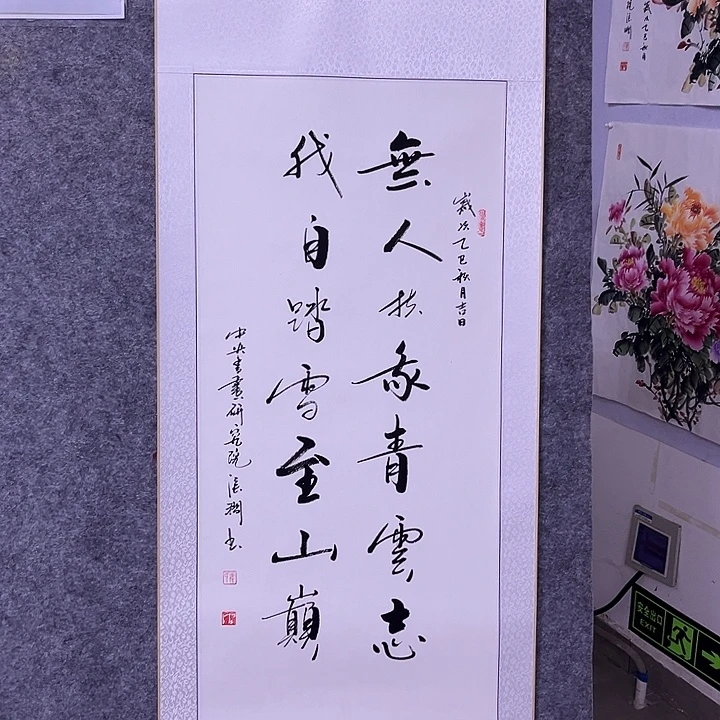 歲次乙巳秋月吉日
無人扶我青雲志
我自踏雪至山巔
中央書畫研究院
书
安全出口
EXIT